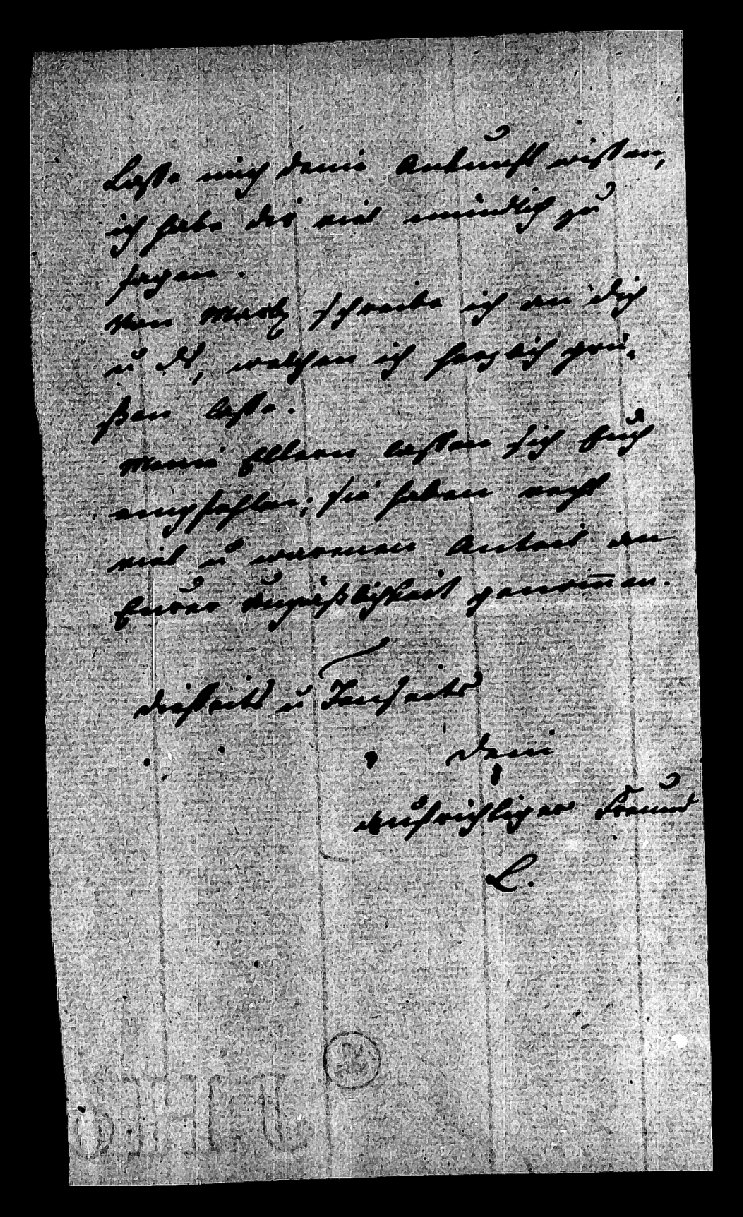 Lasse mich deine Ankunft wissen,
ich habe dir viel mündlich zu
sagen.
Von schreibe ich an dich
u. welchen ich herzlich grü-
ßen lasse.
Meine Eltern lassen sich Euch
empfehlen; sie haben recht
viel u warmen Anteil an
Eurer Unpäßlichkeit genommen.
diesseits u Jenseits
Dein
aufrichtiger Freund
L.